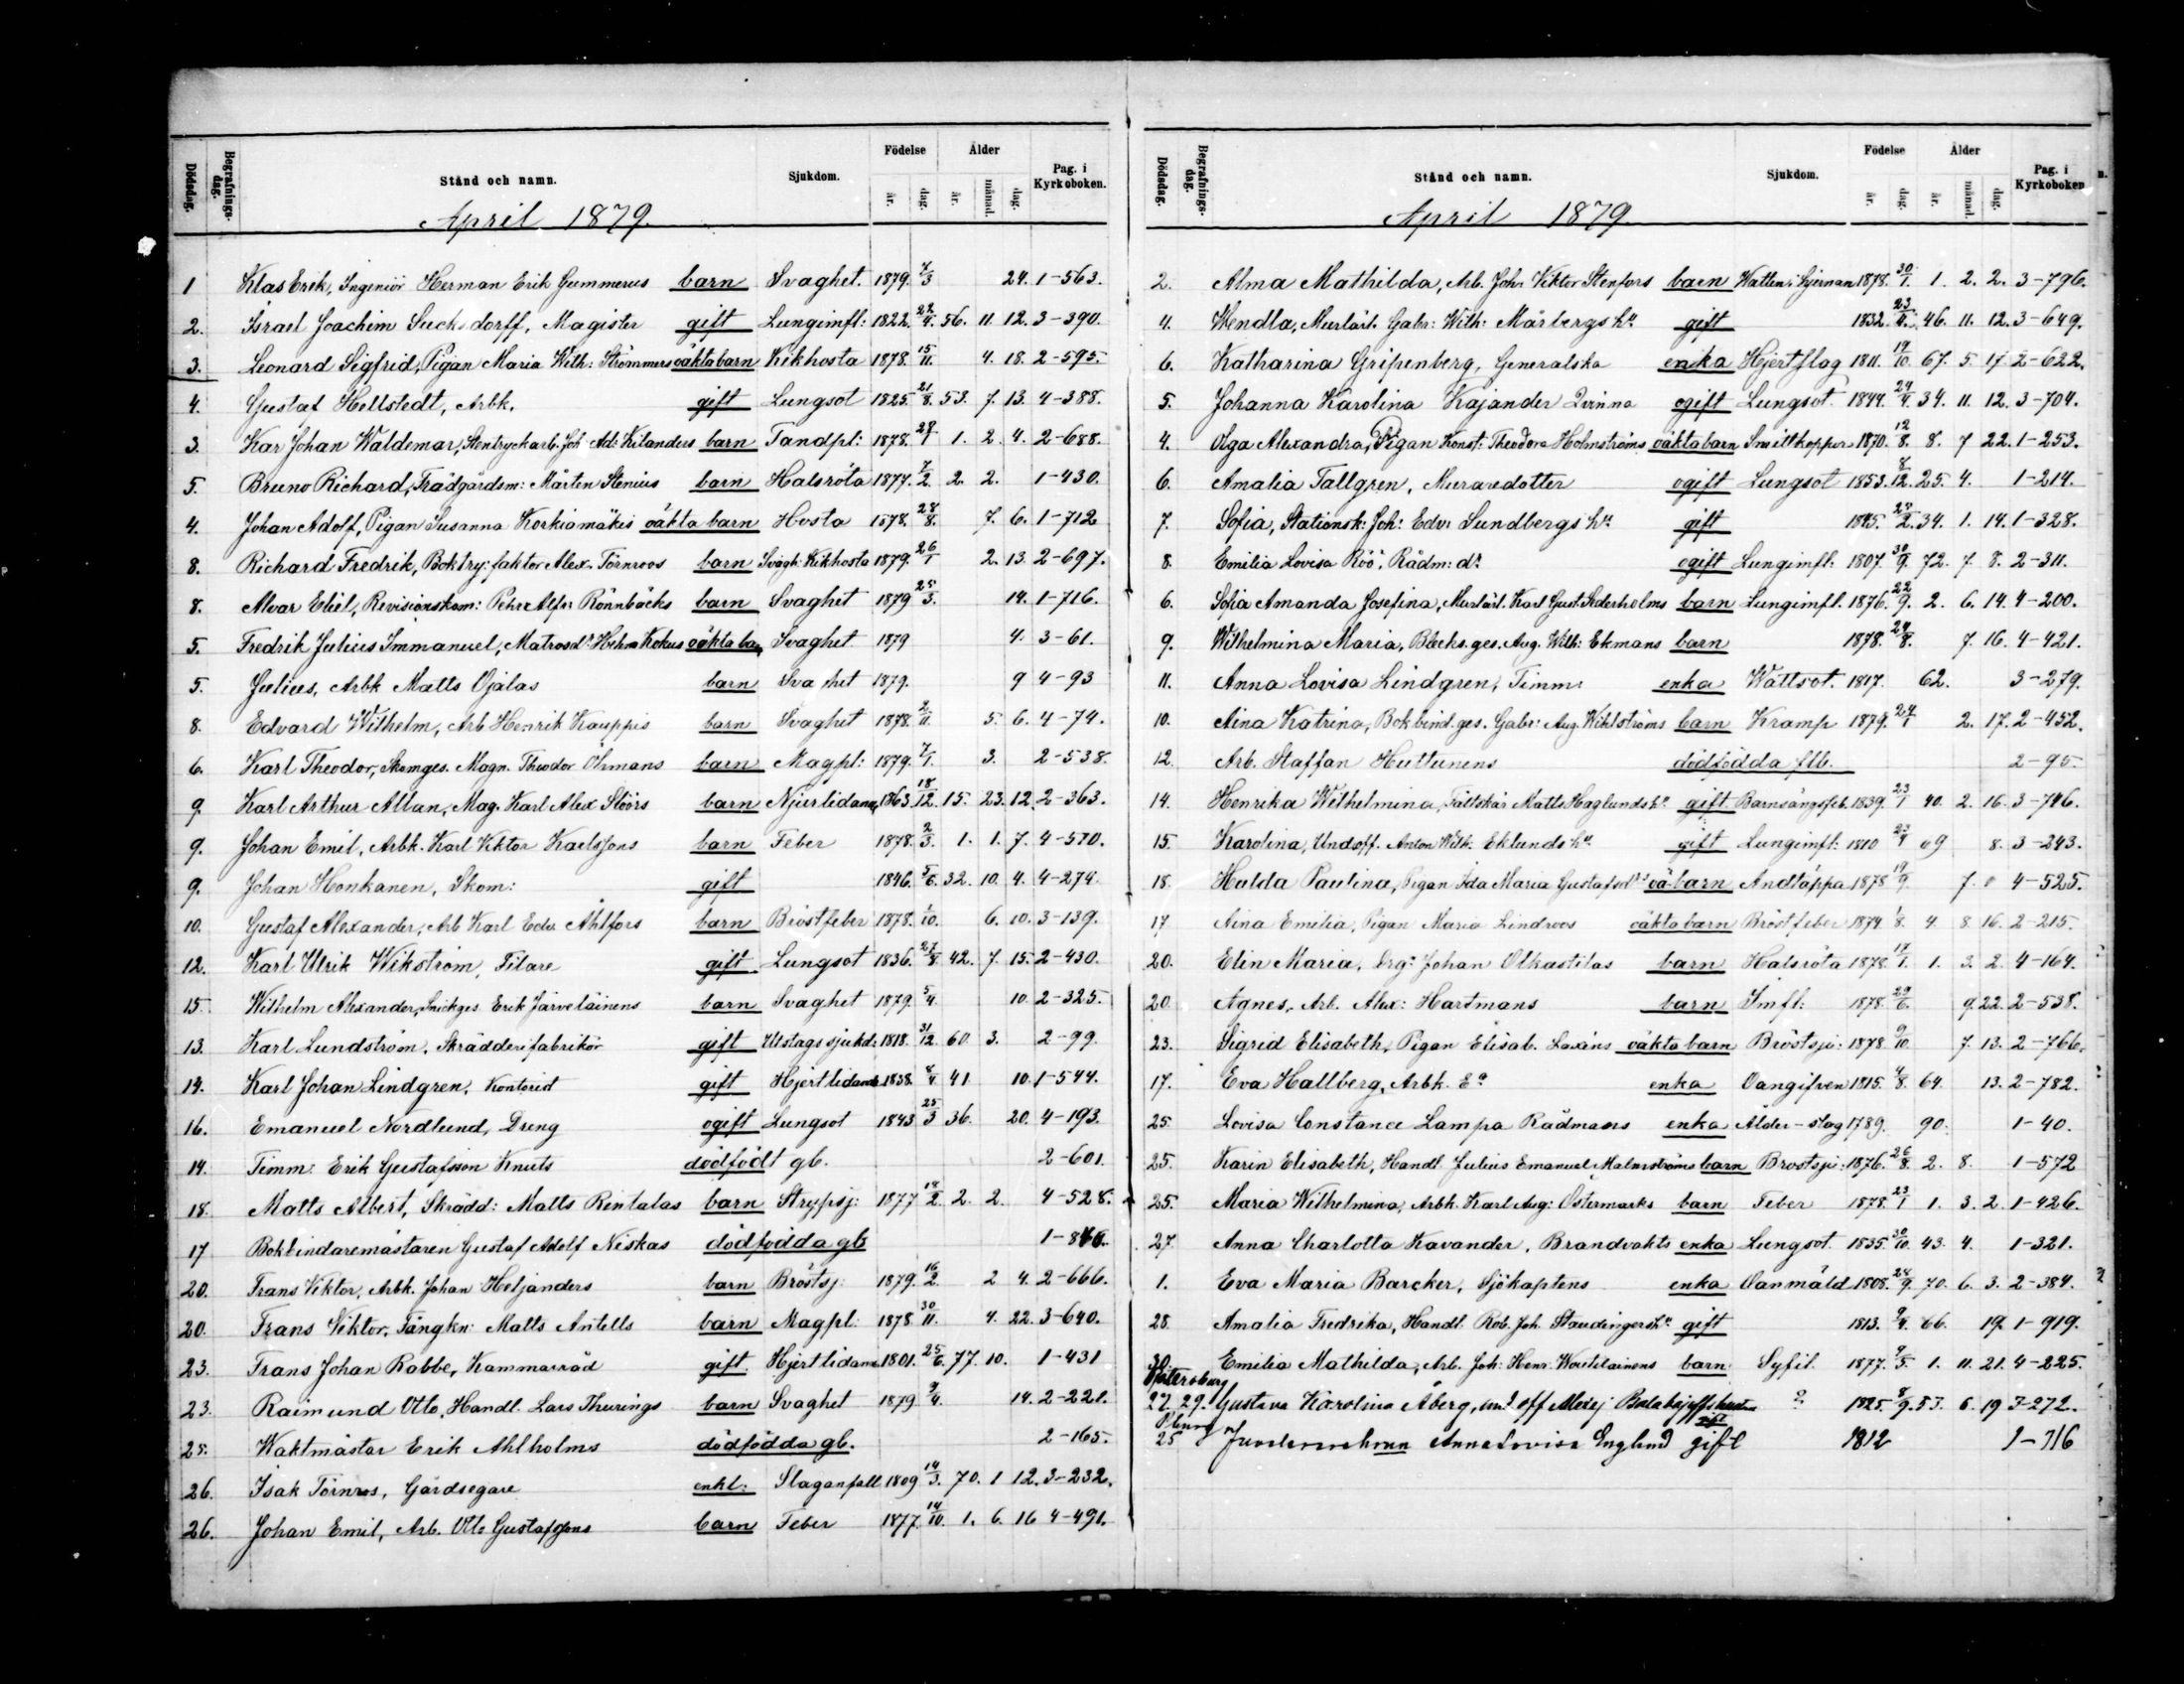 Dödsdag. Begrafnings-dag. Stånd och namn. Sjukdom. Födelse år. dag. Ålder år. månad. dag. Pag. i Kyrkoboken.
April 1879.
1 Klas Erik, Ingeniör Herman Erik Gummerus barn Svaghet. 1879. 7/3 24. 1-563.
2. Israel Joachim Sucksdorff, Magister gift Lungimfl: 1822. 22/4. 56. 11. 12. 3-390.
3. Leonard Sigfrid, Pigan Maria Wilh: Strömmers oäkta barn Kikhosta 1878. 15/11. 4. 18. 2-595.
4. Gustaf Hellstedt, Arbk. gift Lungsot 1825. 21/8. 53. 7. 13. 4-388.
3. Kar Johan Waldemar, Stentryckarb. Joh Ad: Kilanders barn Tandpl: 1878. 28/1 1. 2. 4. 2-688.
5. Bruno Richard, Trädgårdsm: Mårten Stenius barn Halsröta 1877. 7/2. 2. 2. 1-430.
4. Johan Adolf, Pigan Susanna Korkiamäkis oäkta barn Hosta 1878. 28/8. 7. 6. 1-712
8. Richard Fredrik, Boktry: faktor Alex. Törnroos barn Svagh: Kikhosta 1879. 26/1 2. 13. 2-697.
8. Alvar Eliel, Revisionskom: Pehr Alfr: Rönnbäcks barn Svaghet 1879 25/3. 14. 1-716.
5. Fredrik Julius Immanuel, Matrosd: Helm Kokus oäkta barn Svaghet 1879 4. 3-61.
5. Julius, Arbk Matts Ojalas barn Svaghet 1879. 9 4-93
8. Edvard Wilhelm, Arb Henrik Kauppis barn Svaghet 1878. 2/11. 5. 6. 4-74.
6. Karl Theodor, Skomges. Magn. Theodor Öhmans barn Magpl: 1879. 7/1. 3. 2-538.
9. Karl Arthur Allan, Mag. Karl Alex Slöörs barn Njurlidande 1863. 18/12. 15. 23. 12. 2-363.
9. Johan Emil, Arbk. Karl Viktor Karlssons barn Feber 1878. 2/3. 1. 1. 7. 4-510.
9. Johan Honkanen, Skom: gift 1846. 5/6. 32. 10. 4. 4-274.
10. Gustaf Alexander, Arb Karl Edv. Ahlfors barn Bröstfeber 1878. 1/10. 6. 10. 3-139.
12. Karl Ulrik Wikström, Filare gift Lungsot 1836. 27/8. 42. 7. 15. 2-430.
15. Wilhelm Alexander, Snickges Erik Järveläinens barn Svaghet 1879. 5/4. 10. 2-325.
13. Karl Lundström. Skrädderifabrikör gift Utslags sjukd: 1818. 31/12 60. 3. 2-99.
14. Karl Johan Lindgren, Kontorist gift Hjertlidande 1838. 4/4. 41 10. 1-544.
16. Emanuel Nordlund, Dreng ogift Lungsot 1843 25/3 36. 20. 4-193.
14. Timm: Erik Gustafsson Knuts dödfödt gb. 2-601.
18. Matts Albert, Skrädd: Matts Rentalas barn Strypsj: 1877 18/2. 2. 2. 4-528.
17 Bokbindaremästaren Gustaf Adolf Niskas dödfödda gb
20. Frans Viktor, Arbk. Johan Heljanders barn Bröstsj: 1879. 16/2. 2 4. 2-666.
20. Frans Viktor, Fångkn: Matts Antells barn Magpl: 1878 30/11. 4. 22. 3-640.
23. Frans Johan Rabbe, Kammarråd gift. Hjertlidande 1801. 25/6. 77. 10. 1-431
23. Raimund Otto, Handl. Lars Thurings barn Svaghet 1879 9/4. 14. 2-221.
25. Waktmästar Erik Ahlholms dödfödda gb. 2-165.
26. Isak Törnros, Gårdsegare enkl: Slaganfall 1809 14/3. 70. 1 12. 3-232.
26. Johan Emil, Arb. Otto Gustafssons barn Feber 1877. 14/10. 1. 6. 16 4-491.
Dödsdag. Begrafnings-dag. Stånd och namn. Sjukdom. Födelse år. dag. Ålder år. månad. dag. Pag. i Kyrkoboken
April 1879.
2. Alma Mathilda, Arb. Joh: Viktor Stenfors barn Watten i Hjernan 1878. 30/1. 1. 2. 2. 3-796.
4. Wendla, Murlärl. Gabr: Wilh: Mårbergs hu gift 1832. 23/4. 46. 11. 12. 3-649.
6. Katharina Gripenberg, Generalska enka Hjertslag 1811. 19/10. 67. 5. 17 2-622.
5. Johanna Karolina Kajander Qvinna ogift Lungsot 1844. 24/4. 34. 11. 12. 3-704.
4. Olga Alexandra, Pigan Konst: Theodora Holmströms oäkta barn Smittkoppor 1870. 12/8. 8. 7 22. 1-253.
6. Amalia Tallgren, Muraredotter ogift Lungsot 1853. 8/12. 25. 4. 1-214.
7. Sofia, Stationsk: Joh: Edv: Sundbergs hu gift 1845. 24/2. 34. 1. 14. 1-328.
8. Emilia Lovisa Röö, Rådm: dr ogift Lungimfl: 1807. 30/9. 72. 7. 8. 2-311.
6. Sofia Amanda Josefina, Murlärl. Karl Gust. Sederholms barn Lungimfl. 1876. 22/9. 2. 6. 14. 4-200.
9. Wilhelmina Maria, Blecks.ges. Aug. Wilh: Ekmans barn 1878. 24/8. 7. 16. 4-421.
11. Anna Lovisa Lindgren, Timm: enka Wattsot. 1817. 62. 3-279.
10. Aina Katrina, Bokbind.ges. Gabr: Aug. Wihlströms barn Kramp 1879. 24/1 2. 17. 2-452.
12. Arb. Staffan Huttunens dödfödda flb. 2-95.
14. Henrika Wilhelmina, Fältskär Matts Haglunds hu gift Barnsängsfeb. 1839. 23/1 40. 2. 16. 3-746.
15. Karolina, Undoff. Anton Wilh. Eklunds hu gift Lungimfl: 1810 23/4 69 8. 3-243.
18. Hulda Paulina, Pigan Ida Maria Gustafsdrs oä barn Andtäppa 1878 19/9. 7. 4-525.
17. Aina Emilia, Pigan Maria Lindroos oäkta barn Bröstfeber 1874 1/8. 4. 8 16. 2-215.
20. Elin Maria, Drg: Johan Olkastilas barn Halsröta 1878. 17/1. 1. 3. 2. 4-164.
20. Agnes, Arb. Alex: Hartmans barn Imfl: 1878. 29/6. 9. 22. 2-538.
23. Sigrid Elisabeth, Pigan Elisab. Laxéns oäkta barn Bröstsju: 1878. 9/10. 7. 13. 2-766.
17. Eva Hallberg, Arbk. Ea enka Oangifven 1815. 4/8. 64. 13. 2-782.
25. Lovisa Constance Lampa Rådmans enka Ålder-slag 1789. 90. 1-40.
25. Karin Elisabeth, Handl. Julius Emanuel Malmströms barn Brostsju: 1876. 26/8. 2. 8. 1-572
25. Maria Wilhelmina, Arbk. Karl Aug: Östermarks barn Feber 1878. 23/1 1. 3. 2. 1-426.
27. Anna Charlotta Kavander, Brandvakts enka Lungsot. 1835. 30/10. 43. 4. 1-321.
1. Eva Maria Barcker, Sjökaptens enka Oanmäld 1808. 28/9. 70. 6. 3. 2-384.
28. Amalia Fredrika, Handl. Rob. Joh. Staudingers hu gift 1813. 9/4. 66. 19. 1-919.
30. Emilia Mathilda, Arb. Joh: Henr: barn Syfil. 1877. 9/5. 1. 11. 21. 4-225.
Petersburg
27. 29. Gustava Karolina Åberg, und off Alexej hustru ? 1825. 8/9. 53. 6. 19 3-272.
25 Anna Lovisa Englund gift 1812 1-716